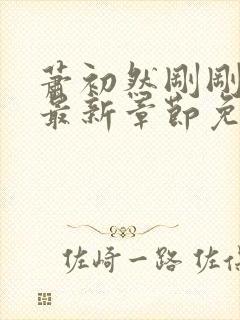 萧初然刚刚
最新章节免
佐崎一路 佐伯